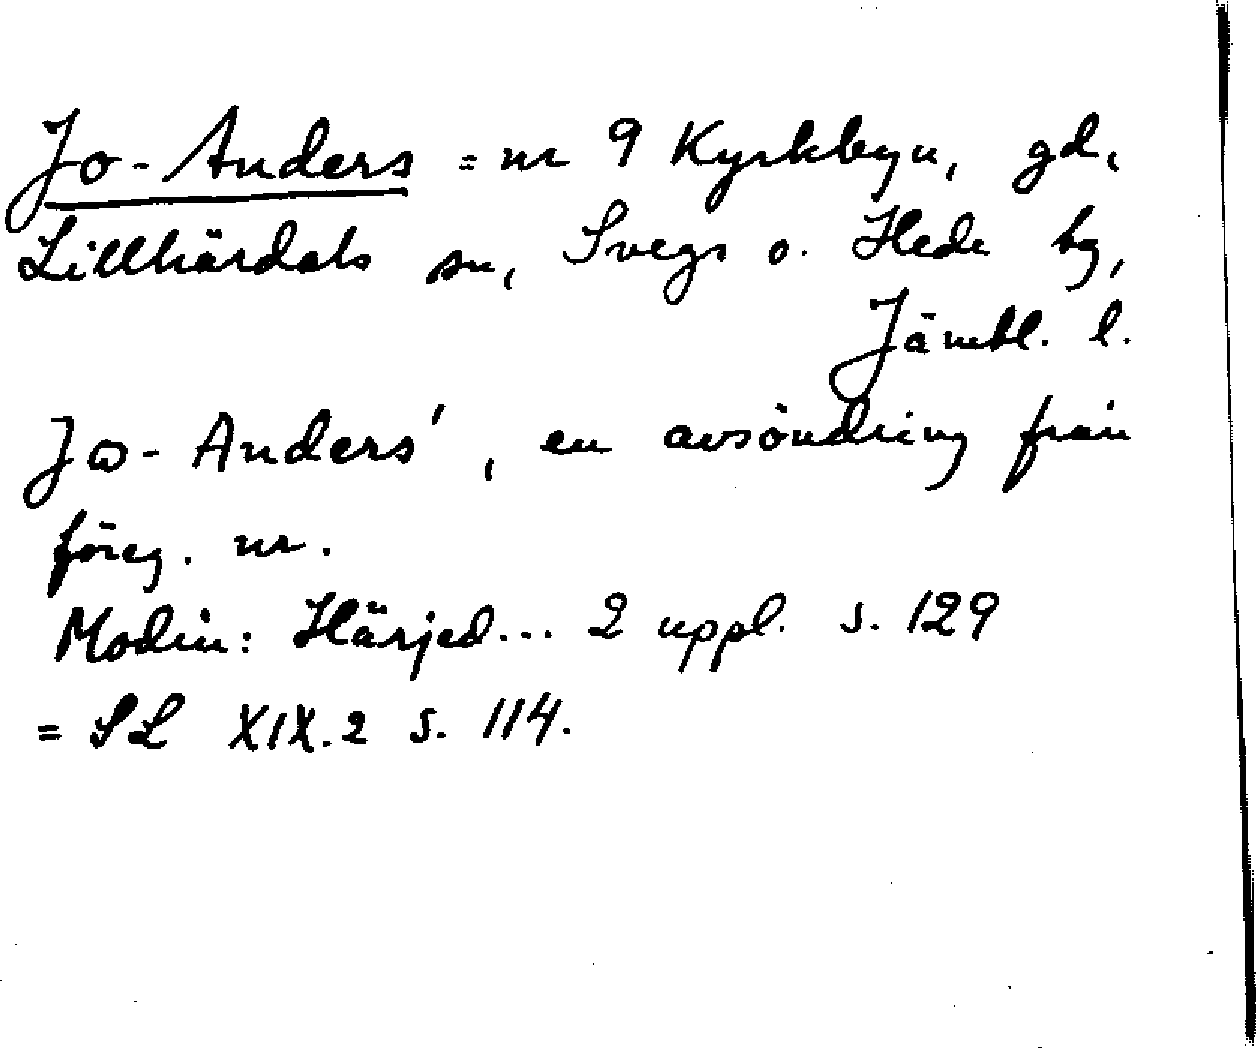 Jo-Anders = nr 9 Kyrkbyn, gd,
Lillhärdals sn, Svegs o. Hede tg,
Jämtl. l.
Jo-Anders', en avsöndring från
föreg. nr.
Modin: Härjed... 2 uppl. s. 129
= SL XIX.2 s. 114.